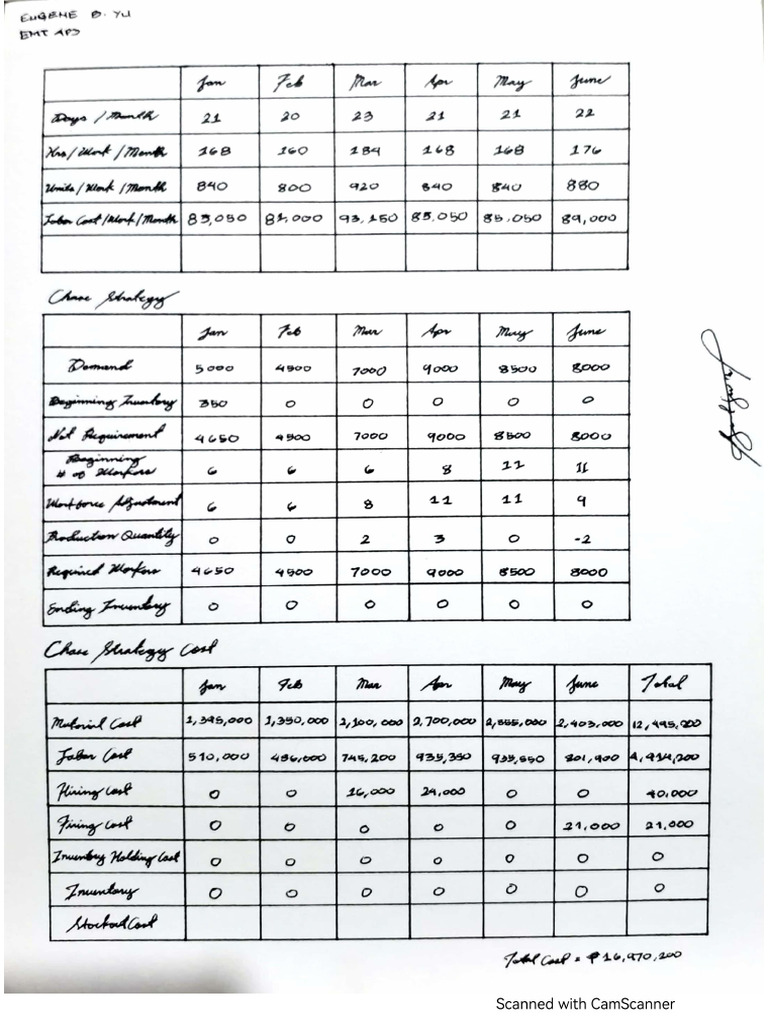 EUGENE B. YU
EMT AP3
Jan Feb Mar Apr May June
Days / Month 21 20 23 21 21 22
Hrs / Work / Month 168 160 184 168 168 176
Units / Work / Month 840 800 920 840 840 880
Labor Cost / Work / Month 85,050 81,000 93,150 85,050 85,050 89,000
Chase Strategy
Jan Feb Mar Apr May June
Demand 5000 4500 7000 9000 8500 8000
Beginning Inventory 350 0 0 0 0 0
Net Requirement 4650 4500 7000 9000 8500 8000
Beginning
# of Workers 6 6 6 8 11 11
Workforce Adjustment 6 6 8 11 11 9
Production Quantity 0 0 2 3 0 -2
Required Workers 4650 4500 7000 9000 8500 8000
Ending Inventory 0 0 0 0 0 0
Chase Strategy Cost
Jan Feb Mar Apr May June Total
Material Cost 1,395,000 1,350,000 2,100,000 2,700,000 2,403,000
Labor Cost 510,000 486,000 745,200 935,550 801,900 4,914,200
Hiring Cost 0 0 16,000 24,000 0 0 40,000
Firing Cost 0 0 0 0 0 21,000 21,000
Inventory Holding Cost 0 0 0 0 0 0 0
Inventory 0 0 0 0 0 0 0
Stockout Cost
Total Cost = ₱ 16,970,200
Scanned with CamScanner